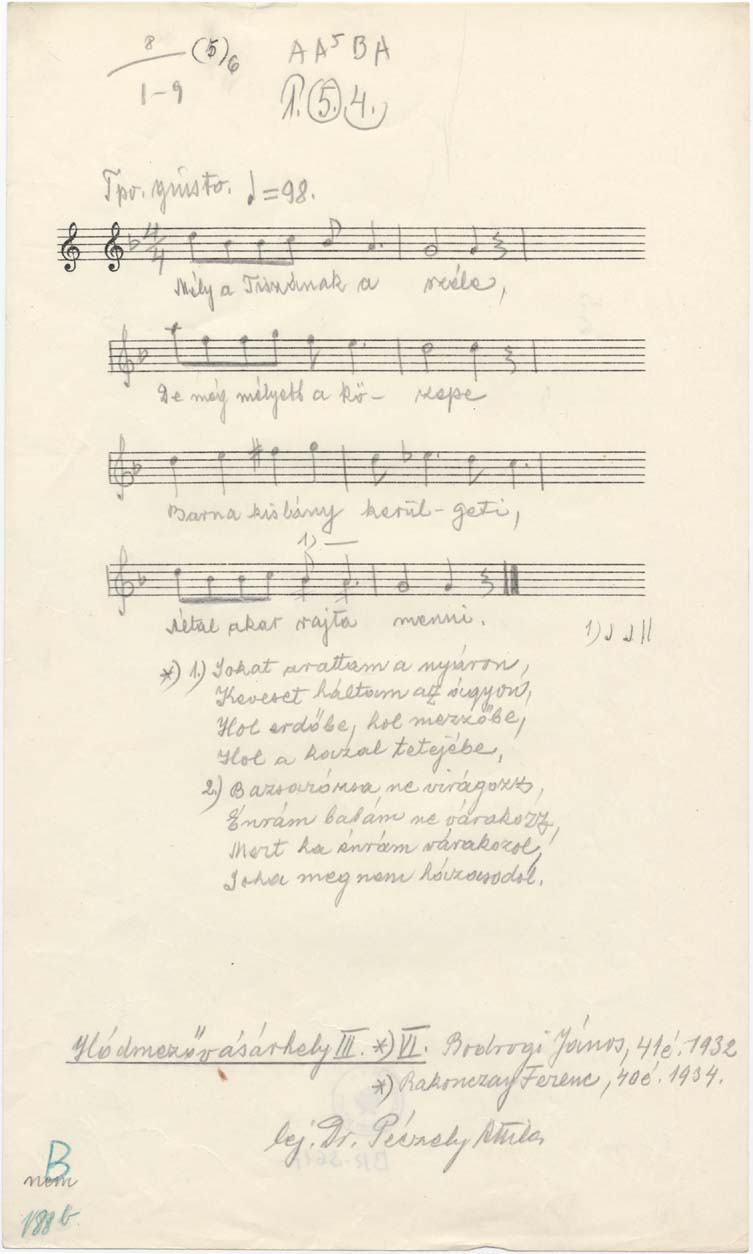 8 (5) 6
1-9
A A⁵ B A
1. (5.) 4.
Tpo. giusto. ♩=98.
4/4
Mély a Tiszának a széle,
De még mélyebb a kö- zepe
Barna kislány kerül-geti,
1)
Által akar rajta menni.
1) ♩ ♩ ||
*) 1.) Sokat arattam a nyáron,
Keveset háltam az ágyon,
Hol erdőbe, hol mezzőbe,
Hol a kazal tetejébe,
2.) Bazsarózsa ne virágozz,
Énrám babám ne várakozz,
Mert ha énrám várakozol,
Soha meg nem házasodol.
Hódmezővásárhely III. *) VI. Bodrogi János, 41 é. 1932
*) Rakonczay Ferenc, 40 é. 1934.
lej. Dr. Péczely Attila
B
nem
188 b.